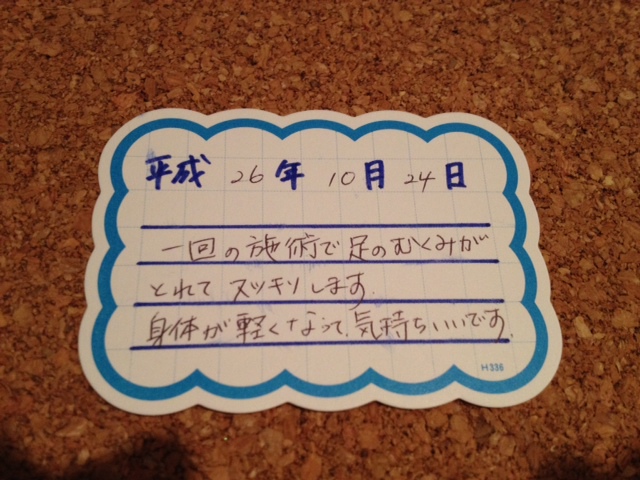 平成 26 年 10 月 24 日
一回の施術で足のむくみが
とれてスッキリします.
身体が軽くなって、気持ちいいです.
H336